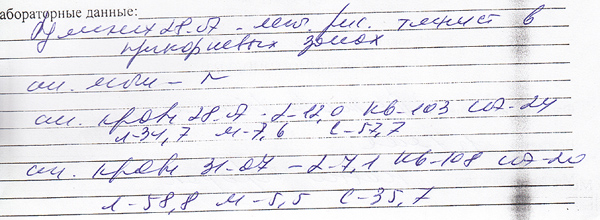 абораторные данные:
R легких 28.07 - лег. рис. тянист в
прикорневых зонах
ан. мочи - N
ан. крови 28.07 - L-12,0 Hb-103 соэ-24
л-34,7 м-7,6 с-57,7
ан. крови 31.07 - L-7,1 Hb-108 соэ-20
л-58,8 м-5,5 с-35,7